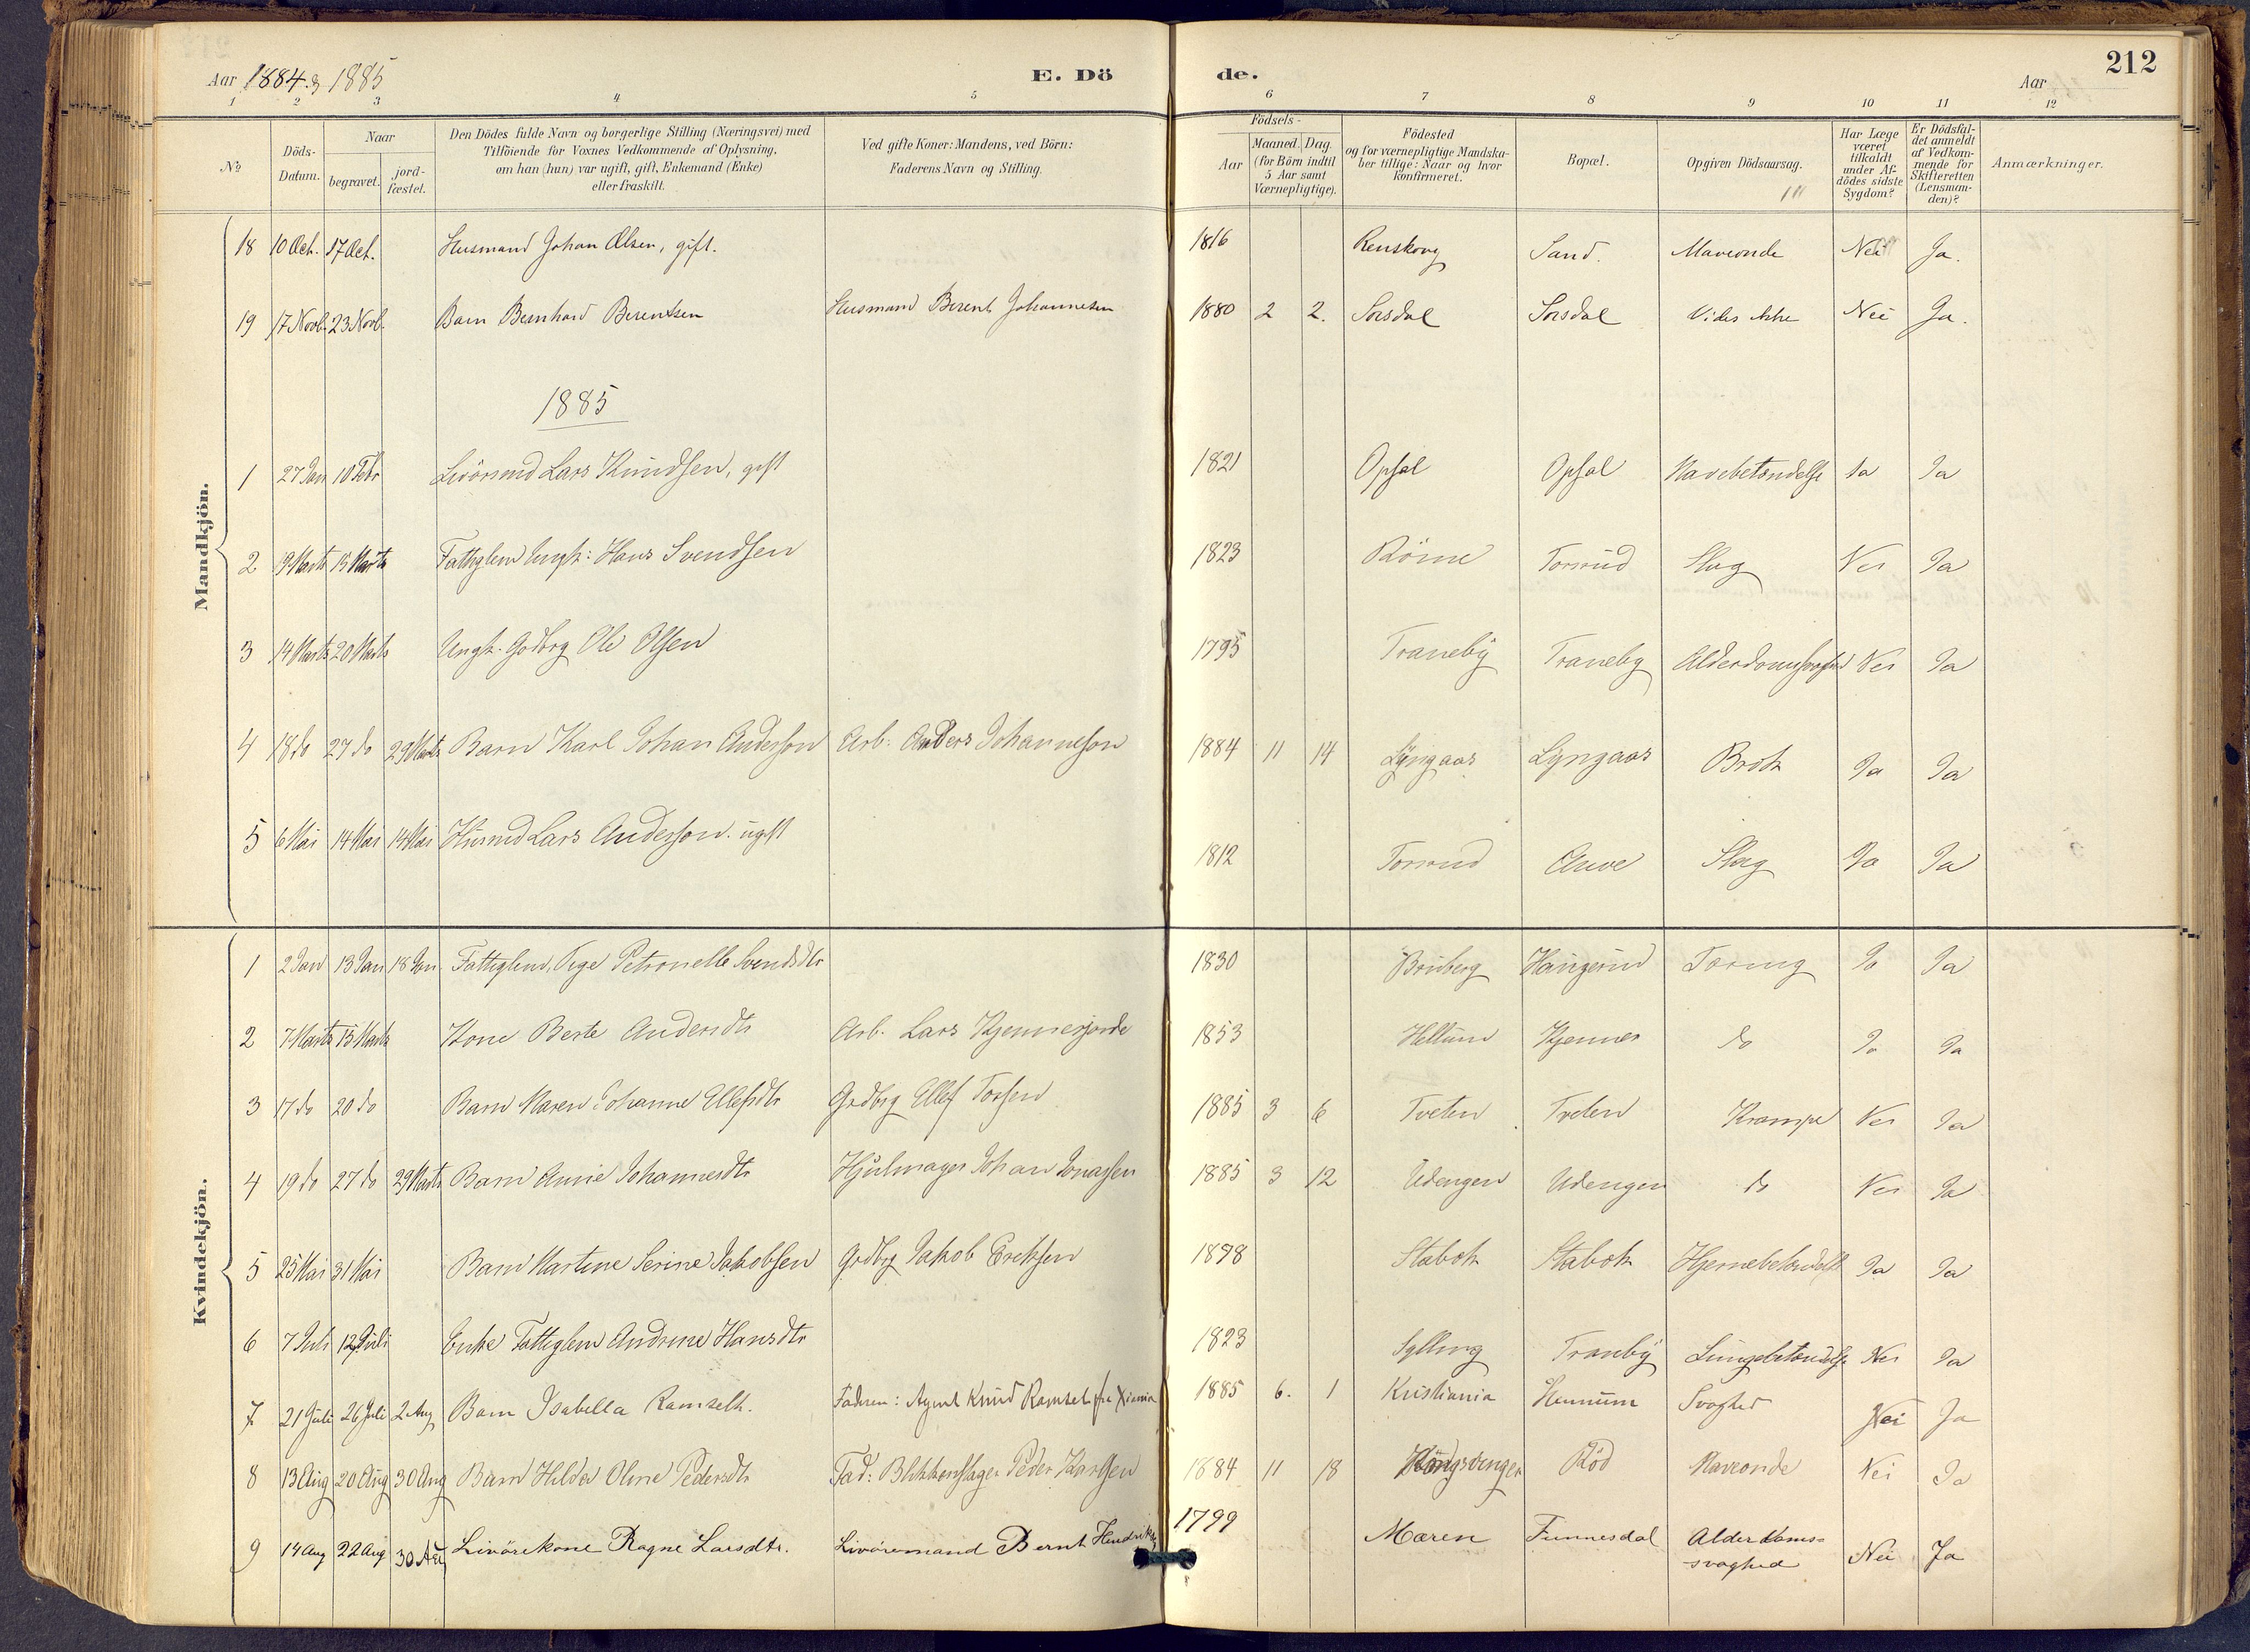 Aar 1884 & 1885
E. Dö
de.
Aar
212
1 2 3 4 5 6 7 8 9 10 11 12
No
Döds-Datum.
Naar
begravet.
jord-fæstet.
Den Dödes fulde Navn og borgerlige Stilling (Næringsvei) med
Tilföiende for Voxnes Vedkommende af Oplysning,
om han (hun) var ugift, gift, Enkemand (Enke)
eller fraskilt.
Ved gifte Koner: Mandens, ved Börn:
Faderens Navn og Stilling.
Födsels-
Aar
Maaned. Dag.
(for Börn indtil
5 Aar samt
Værnepligtige).
Födested
og for værnepligtige Mandska-
ber tillige: Naar og hvor
konfirmeret.
Bopæl.
Opgiven Dödsaarsag.
Har Læge
været
tilkaldt
under Af-
dödes sidste
Sygdom?
Er Dödsfal-
det anmeldt
af Vedkom-
mende for
Skifteretten
(Lensman-
den)?
Anmærkninger.
Mandkjön.
18 10 Oct. 17 Oct. Husmand Johan Olsen, gift. 1816 Renskoug Sand. Maveonde Nei Ja.
19 17 Novb. 23 Novb. Barn Bernhard Berentsen Husmand Berent Johannesen 1880 2 2. Sørsdal Sørsdal Vides ikke Nei Ja.
1885
1 27 Jan 10 Febr Livörmd Lars Knudsen, gift 1821 Opsal Opsal Mavebetændelse Ja Ja
2 9 Marts 15 Marts Fattiglem Ungk: Hans Svendsen 1823 Röine Torsrud Slag Nei Ja
3 14 Marts 20 Marts Ungk. Gdbrg Ole Olsen 1795 Traneby Traneby Alderdomssvaghed Nei Ja
4 18 do 27 do 29 Marts Barn Karl Johan Anderson Arb: Anders Johanneson 1884 11 14 Lyngaas Lyngaas Brok Ja Ja
5 6 Mai 14 Mai 14 Mai Husmd Lars Anderson. ugift 1812 Torsrud Auve Slag Ja Ja
Kvindekjön.
1 2 Jan 13 Jan 18 Jan Fattiglem, Pige Petronelle Svendsdtr 1830 Bruberg Haugerud Tæring Ja Ja
2 7 Marts 15 Marts Kone Berte Andersdtr Arb. Lars Kjennerjorde 1853 Hellum Kjenner do Ja Ja
3 17 do 20 do Barn Maren Johanne Ellefsdtr Grdbrg Ellef Torsen 1885 3 6 Tveten Tveten Krampe Nei Ja
4 19 do 27 do 29 Marts Barn Annie Johannesdtr Hjulmager Johan Jonassen 1885 3 12 Udengen Udengen do Nei Ja
5 25 Mai 31 Mai Barn Martine Serine Jakobsen Grdbrg Jakob Ereksen 1878 Stabæk Stabæk Hjernebetændelse Ja Ja
6 7 Juli 12 Juli Enke Fattiglem Andrine Hansdtr 1823 Sylling Tranby Lungebetændelse Nei Ja
7 21 Juli 26 Juli 2 Aug Barn Isabella Ramseth. Faderen: Agent Knud Ramset fra Xiania 1885 6. 1 Kristiania Hennum Svaghed Nei Ja
8 13 Aug 20 Aug 30 Aug Barn Hilda Oline Pedersdtr Fad: Blikkenslager Peder Karlsen 1884 11 18 Kongsvinger Röd Maveonde Nei Ja
9 14 Aug 22 Aug 30 Aug Livörekone Ragne Larsdtr. Livöremand Bernt Hendriks 1799 Mæren Funnesdal Alderdoms=
svaghed Nei Ja